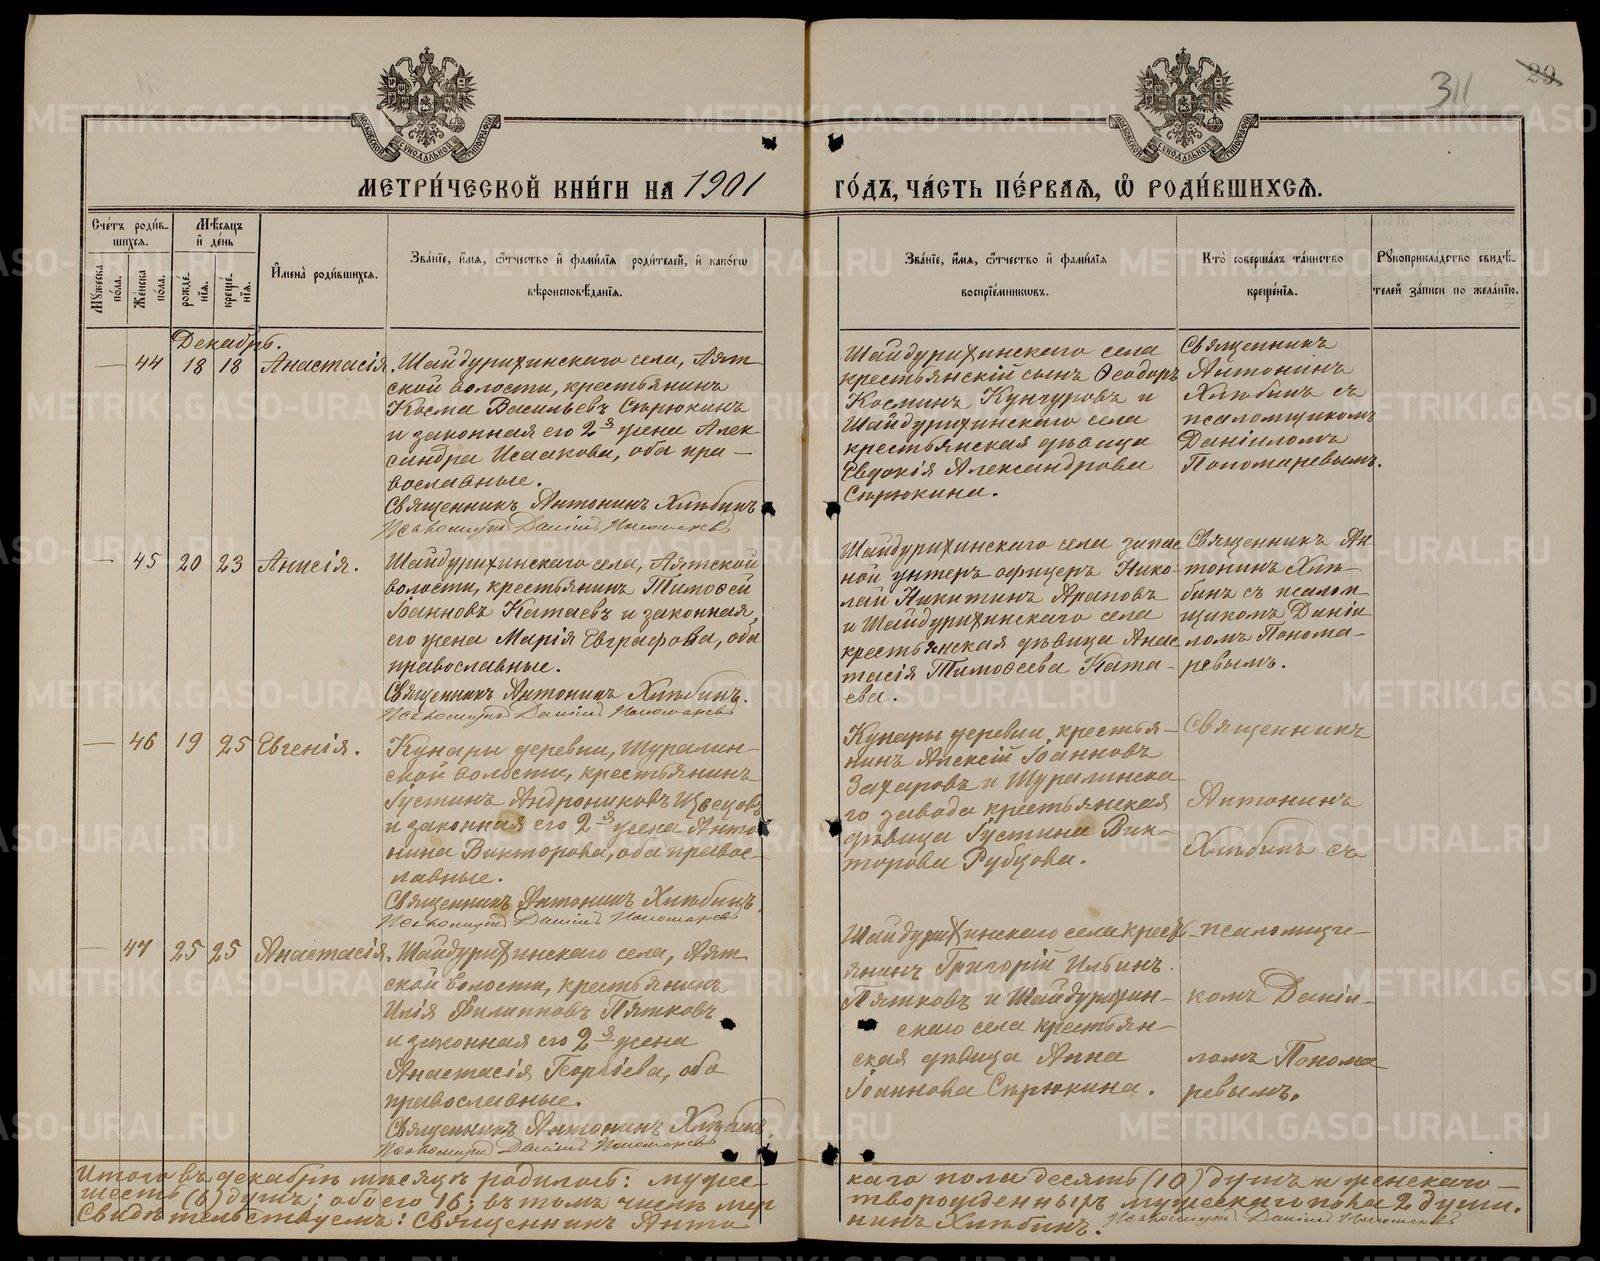 311
29
МЕТРИ́ЧЕСКОЙ КНИ́ГИ НА 1901 ГО́ДЪ, ЧА́СТЬ ПЕ́РВАЯ, Ѽ РОДИ́ВШИХСЯ.
Сче́тъ роди́в-
шихся.
Мѣ́сяцъ
и҆ де́нь
Му́жеска
по́ла.
Же́нска
по́ла.
рожде́-
нїя.
креще́-
нїя.
И҆мена̀ роди́вшихся.
Зва́нїе, и҆́мя, ѻ҆́тчество и҆ фами́лїя роди́телей, и҆ како́гѡ
вѣроисповѣ́данїя.
Зва́нїе, и҆́мя, ѻ҆́тчество и҆ фами́лїя
воспрїе́мниковъ.
Кто̀ соверша́лъ та́инство
креще́нїя.
Рꙋкоприкла́дство свидѣ́-
телей за́писи по жела́нїю.
Декабрь.
— 44 18 18 Анастасія.
Шайдурихинскаго села, Аят-
ской волости, крестьянинъ
Косма Васильевъ Сѣрюкинъ
и законная его 2я жена Алек
сандра Исаакова, оба пра-
вославные.
Священникъ Антонинъ Хлѣбинъ
Псаломщикъ Даніилъ Пономаревъ
Шайдурихинскаго села
крестьянскій сынъ Ѳеодоръ
Косминъ Кунгуровъ и
Шайдурихинскаго села
крестьянская дѣвица
Евдокія Александрова
Сѣрюкина.
Священникъ
Антонинъ
Хлѣбинъ съ
псаломщикомъ
Даніиломъ
Пономаревымъ.
— 45 20 23 Анисія.
Шайдурихинскаго села, Аятской
волости, крестьянинъ Тимоѳей
Іоанновъ Катаевъ и законная
его жена Марія Евграфова, оба
православные.
Священникъ Антонинъ Хлѣбинъ.
Псаломщикъ Даніилъ Пономаревъ
Шайдурихинскаго села запас
ной унтеръ-офицеръ Нико-
лай Никитинъ Араповъ
и Шайдурихинскаго села
крестьянская дѣвица Анас
тасія Тимоѳеева Ката-
ева.
Священникъ Ан
тонинъ Хлѣ-
бинъ съ псалом
щикомъ Даніи
ломъ Понома-
ревымъ.
— 46 19 25 Евгенія.
Кунары деревни, Шуралин-
ской волости, крестьянинъ
Іустинъ Андрониковъ
и законная его 2я жена Анто
нина Викторова, оба правос-
лавные.
Священникъ Антонинъ Хлѣбинъ.
Псаломщикъ Даніилъ Пономаревъ
Кунары деревни, крестья-
нинъ Алексій Іоанновъ
Захаровъ и Шуралинска
го завода крестьянская
дѣвица Іустина Вик-
торова Рубцова.
Священникъ
Антонинъ
Хлѣбинъ съ
— 47 25 25 Анастасія.
Шайдурихинскаго села, Аят
ской волости, крестьянинъ
Илія Филипповъ Пятковъ
и законная его 2я жена
Анастасія Георгіева, оба
православные.
Священникъ Антонинъ Хлѣбинъ.
Псаломщикъ Даніилъ Пономаревъ
Шайдурихинскаго села кресть-
янинъ Григорій Ильинъ
Пятковъ и Шайдурихин-
скаго села крестьян-
ская дѣвица Анна
Іоаннова Сѣрюкина.
псаломщи-
комъ Даніи-
ломъ Понома
ревымъ.
Итого въ декабрѣ мѣсяцѣ родилось: мужес-
каго пола десять (10) душъ и женскаго —
шесть (6) душъ; обоего 16; въ томъ числѣ мер
творожденныхъ мужескаго пола 2 души.
Свидѣтельствуемъ: Священникъ Анто
нинъ Хлѣбинъ. Псаломщикъ Даніилъ Пономаревъ
METRIKI.GASO-URAL.RU